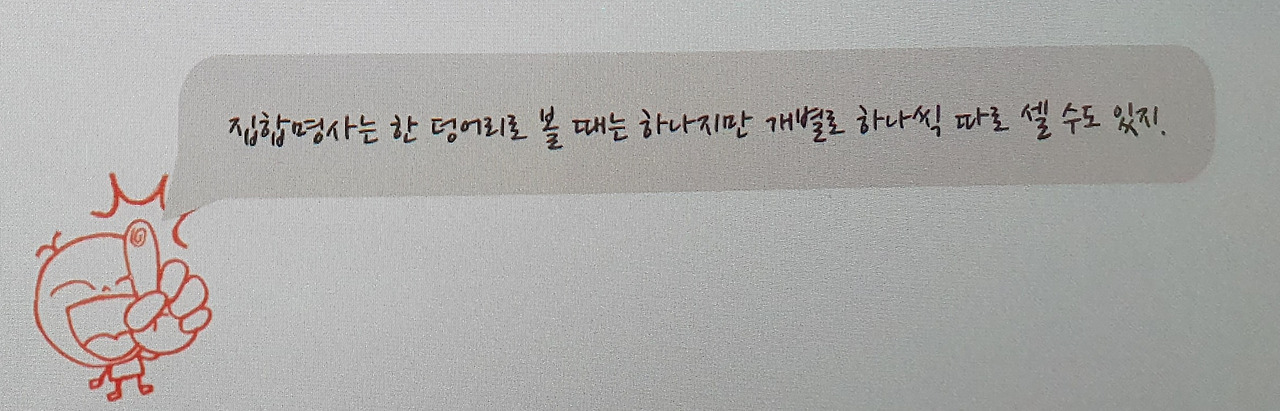 집합명사는 한 덩어리로 볼 때는 하나지만 개별로 하나씩 따로 셀 수도 있지.